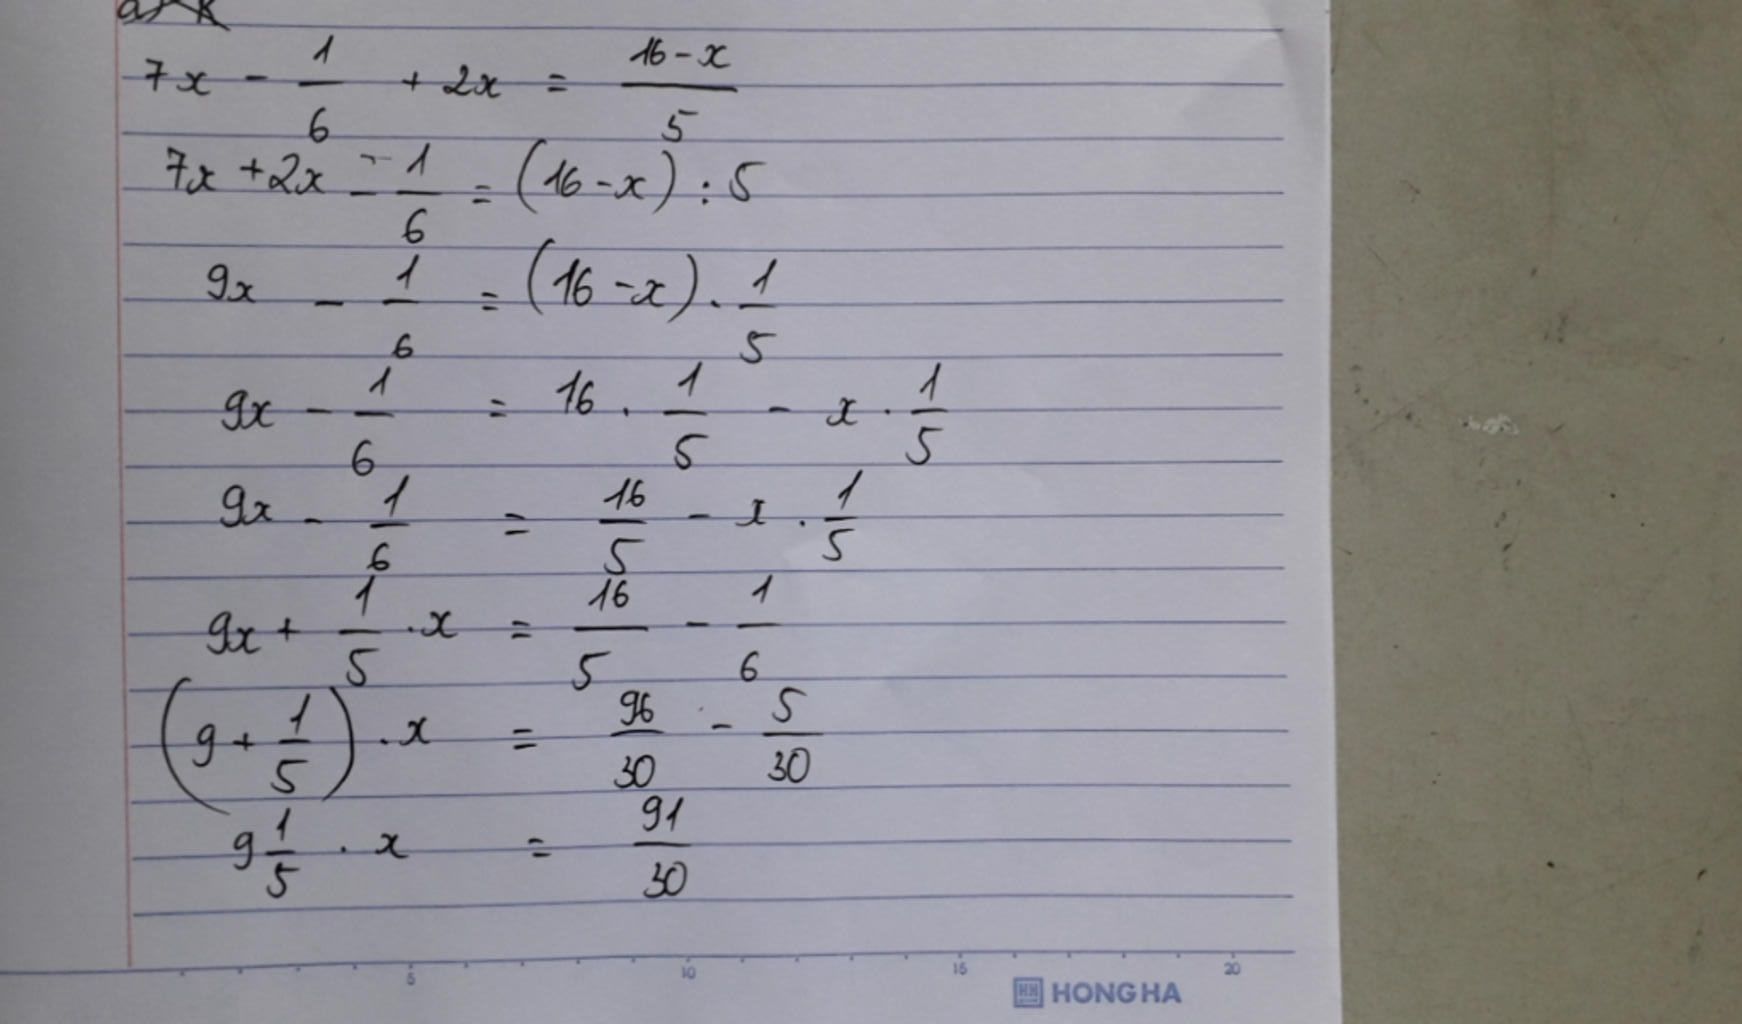 7x - 1/6 + 2x = (16-x)/5
7x + 2x - 1/6 = (16-x) : 5
9x - 1/6 = (16-x) . 1/5
9x - 1/6 = 16 . 1/5 - x . 1/5
9x - 1/6 = 16/5 - x . 1/5
9x + 1/5 . x = 16/5 - 1/6
(9 + 1/5) . x = 96/30 - 5/30
9 1/5 . x = 91/30
5 10 15 20
HONG HA